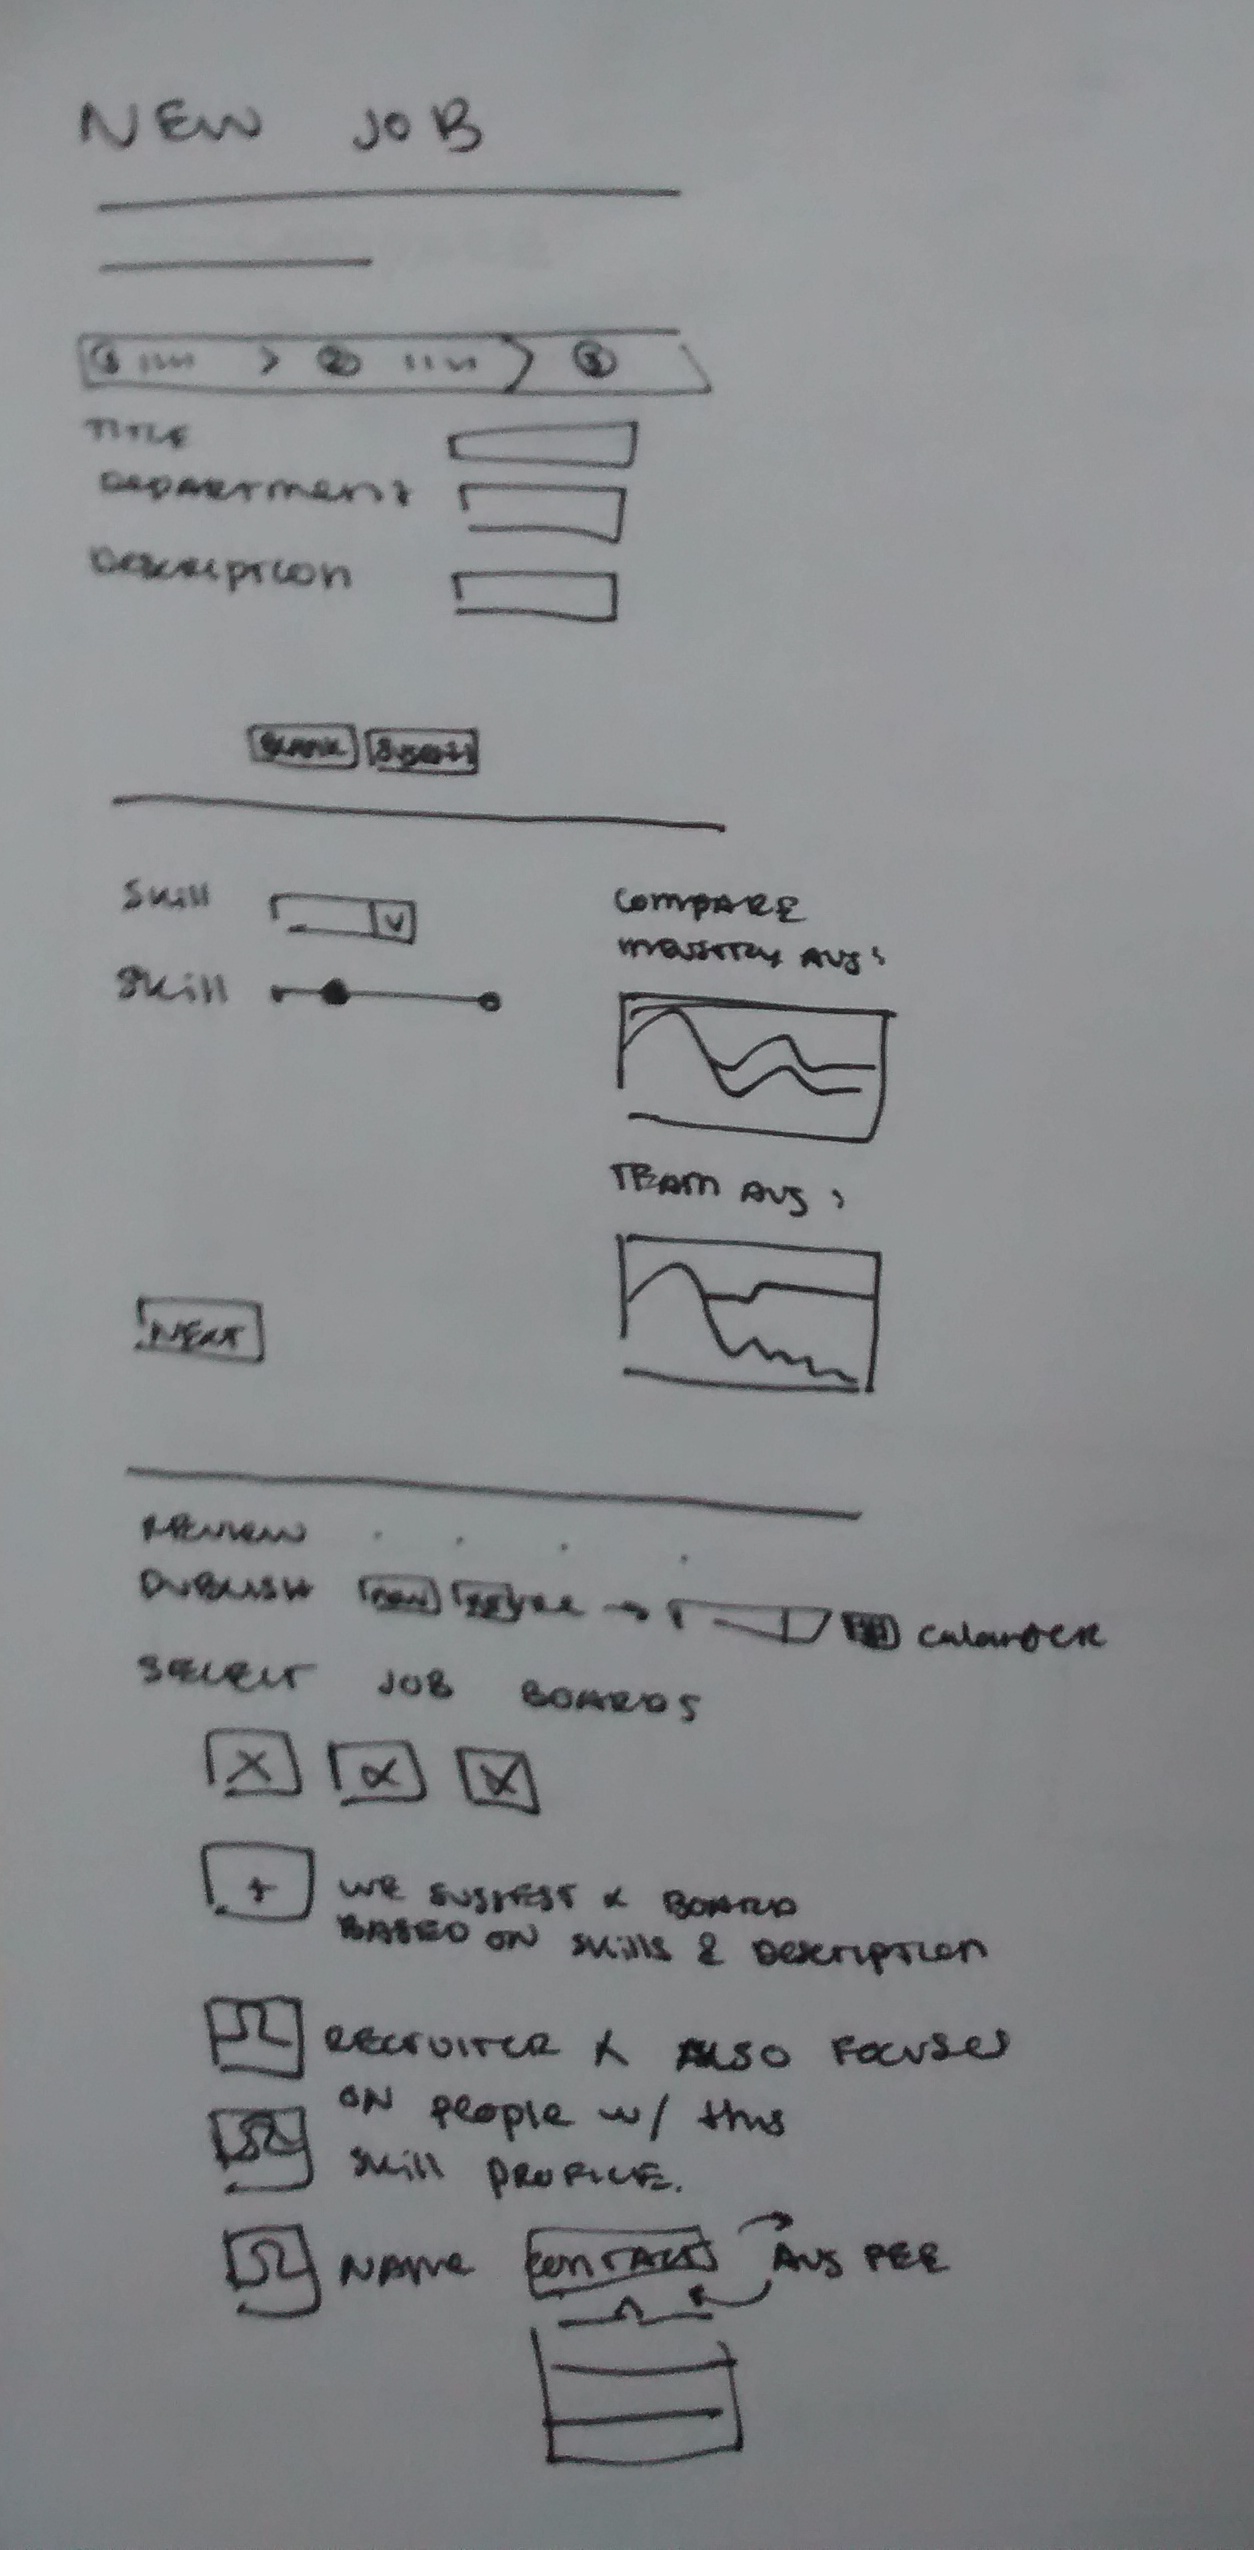 NEW JOB
1 > 2 > 3
TITLE
DEPARTMENT
DESCRIPTION
Skill
Skill
COMPARE
INDUSTRY AVG:
TEAM AVG:
NEXT
REVIEW
PUBLISH → calander
SELECT JOB BOARDS
+ WE SUGGEST X BOARD
BASED ON Skills & DESCRIPTION
RECRUITER X ALSO FOCUSES
ON people w/ this
Skill PROFILE.
NAME CONTACT AVG FEE